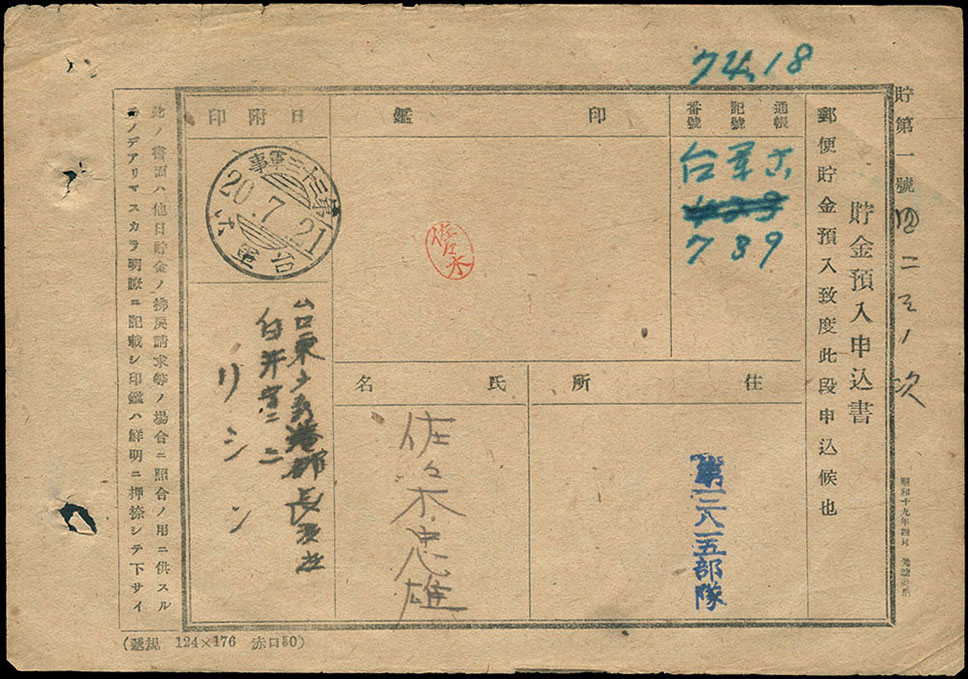 貯第一號
貯金預入申込書
郵便貯金預入致度此段申込候也
昭和十九年四月
7 18
通帳
記號
番號
台軍
789
印鑑
佐々木
日附印
軍事
20.7.21
台軍
住所
第一二八一五部隊
氏名
佐々木忠雄
台東
長
リシン
此ノ書面ハ他日貯金ノ拂戻請求等ノ場合ニ照合ノ用ニ供スル
モノデアリマスカラ明瞭ニ記載シ印鑑ハ鮮明ニ押捺シテ下サイ
(遞規 124×176 赤口50)